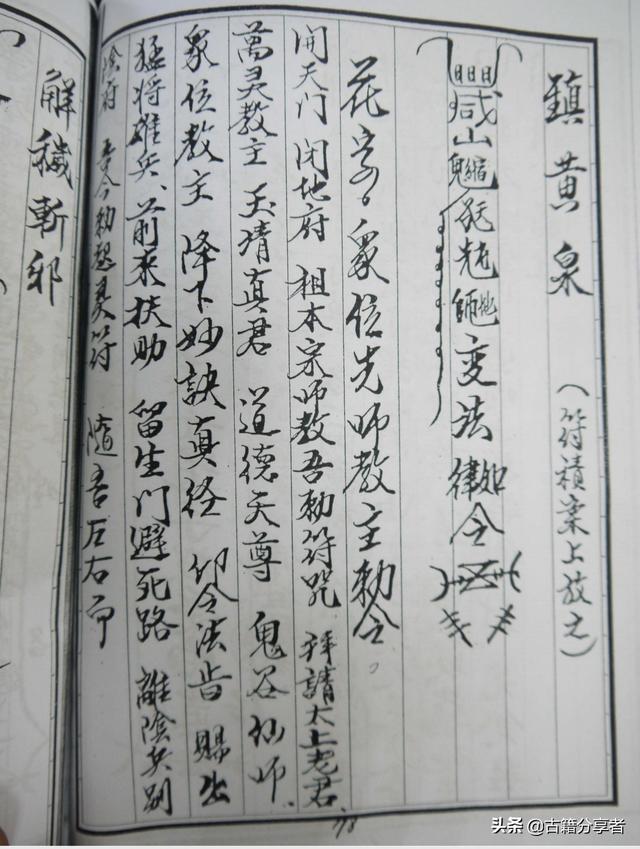 鎮黄泉 （符積案上放之）
山 変法律如令
花字 衆位先师教主勅令。
開天门 閉地府 祖本宗师教吾勅符咒 拜請太上老君
萬灵教主 玉清真君 道德天尊 鬼谷仙师
衆位教主 降下妙訣真径 仰令法旨 赐出
猛将雄兵、前來扶助 留生门避死路 離陰兵别
陰府 吾今勅 灵符 隨吾左右而
78
解穢斬邪
头条 @古籍分享者